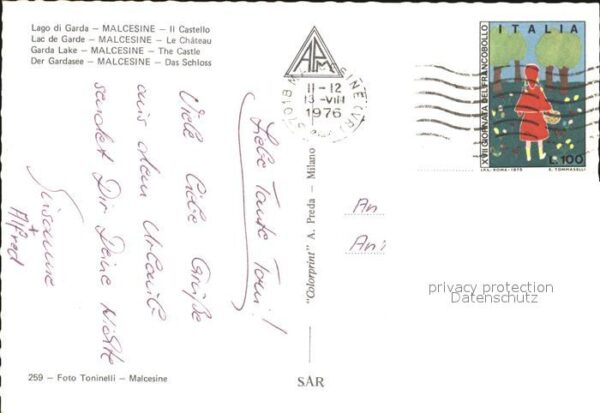 Lago di Garda — MALCESINE — Il Castello
Lac de Garde — MALCESINE — Le Château
Garda Lake — MALCESINE — The Castle
Der Gardasee — MALCESINE — Das Schloss
Liebe Tante Toni!
Viele liebe Grüße
aus dem Urlaub
sendet Dir Deine Nichte
Susanne
+
Alfred
259 — Foto Toninelli — Malcesine
APM
"Colorprint" A. Preda — Milano
SAR
11-12
13-VIII
1976
ITALIA
XVII GIORNATA DEL FRANCOBOLLO
L. 100
I.P.S.-ROMA-1975
E. TOMMASELLI
An
An
privacy protection
Datenschutz